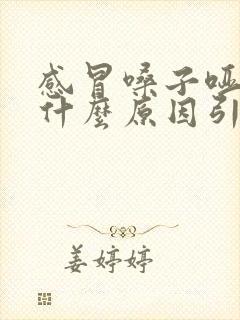 感冒嗓子哑
什麼原因引
姜婷婷